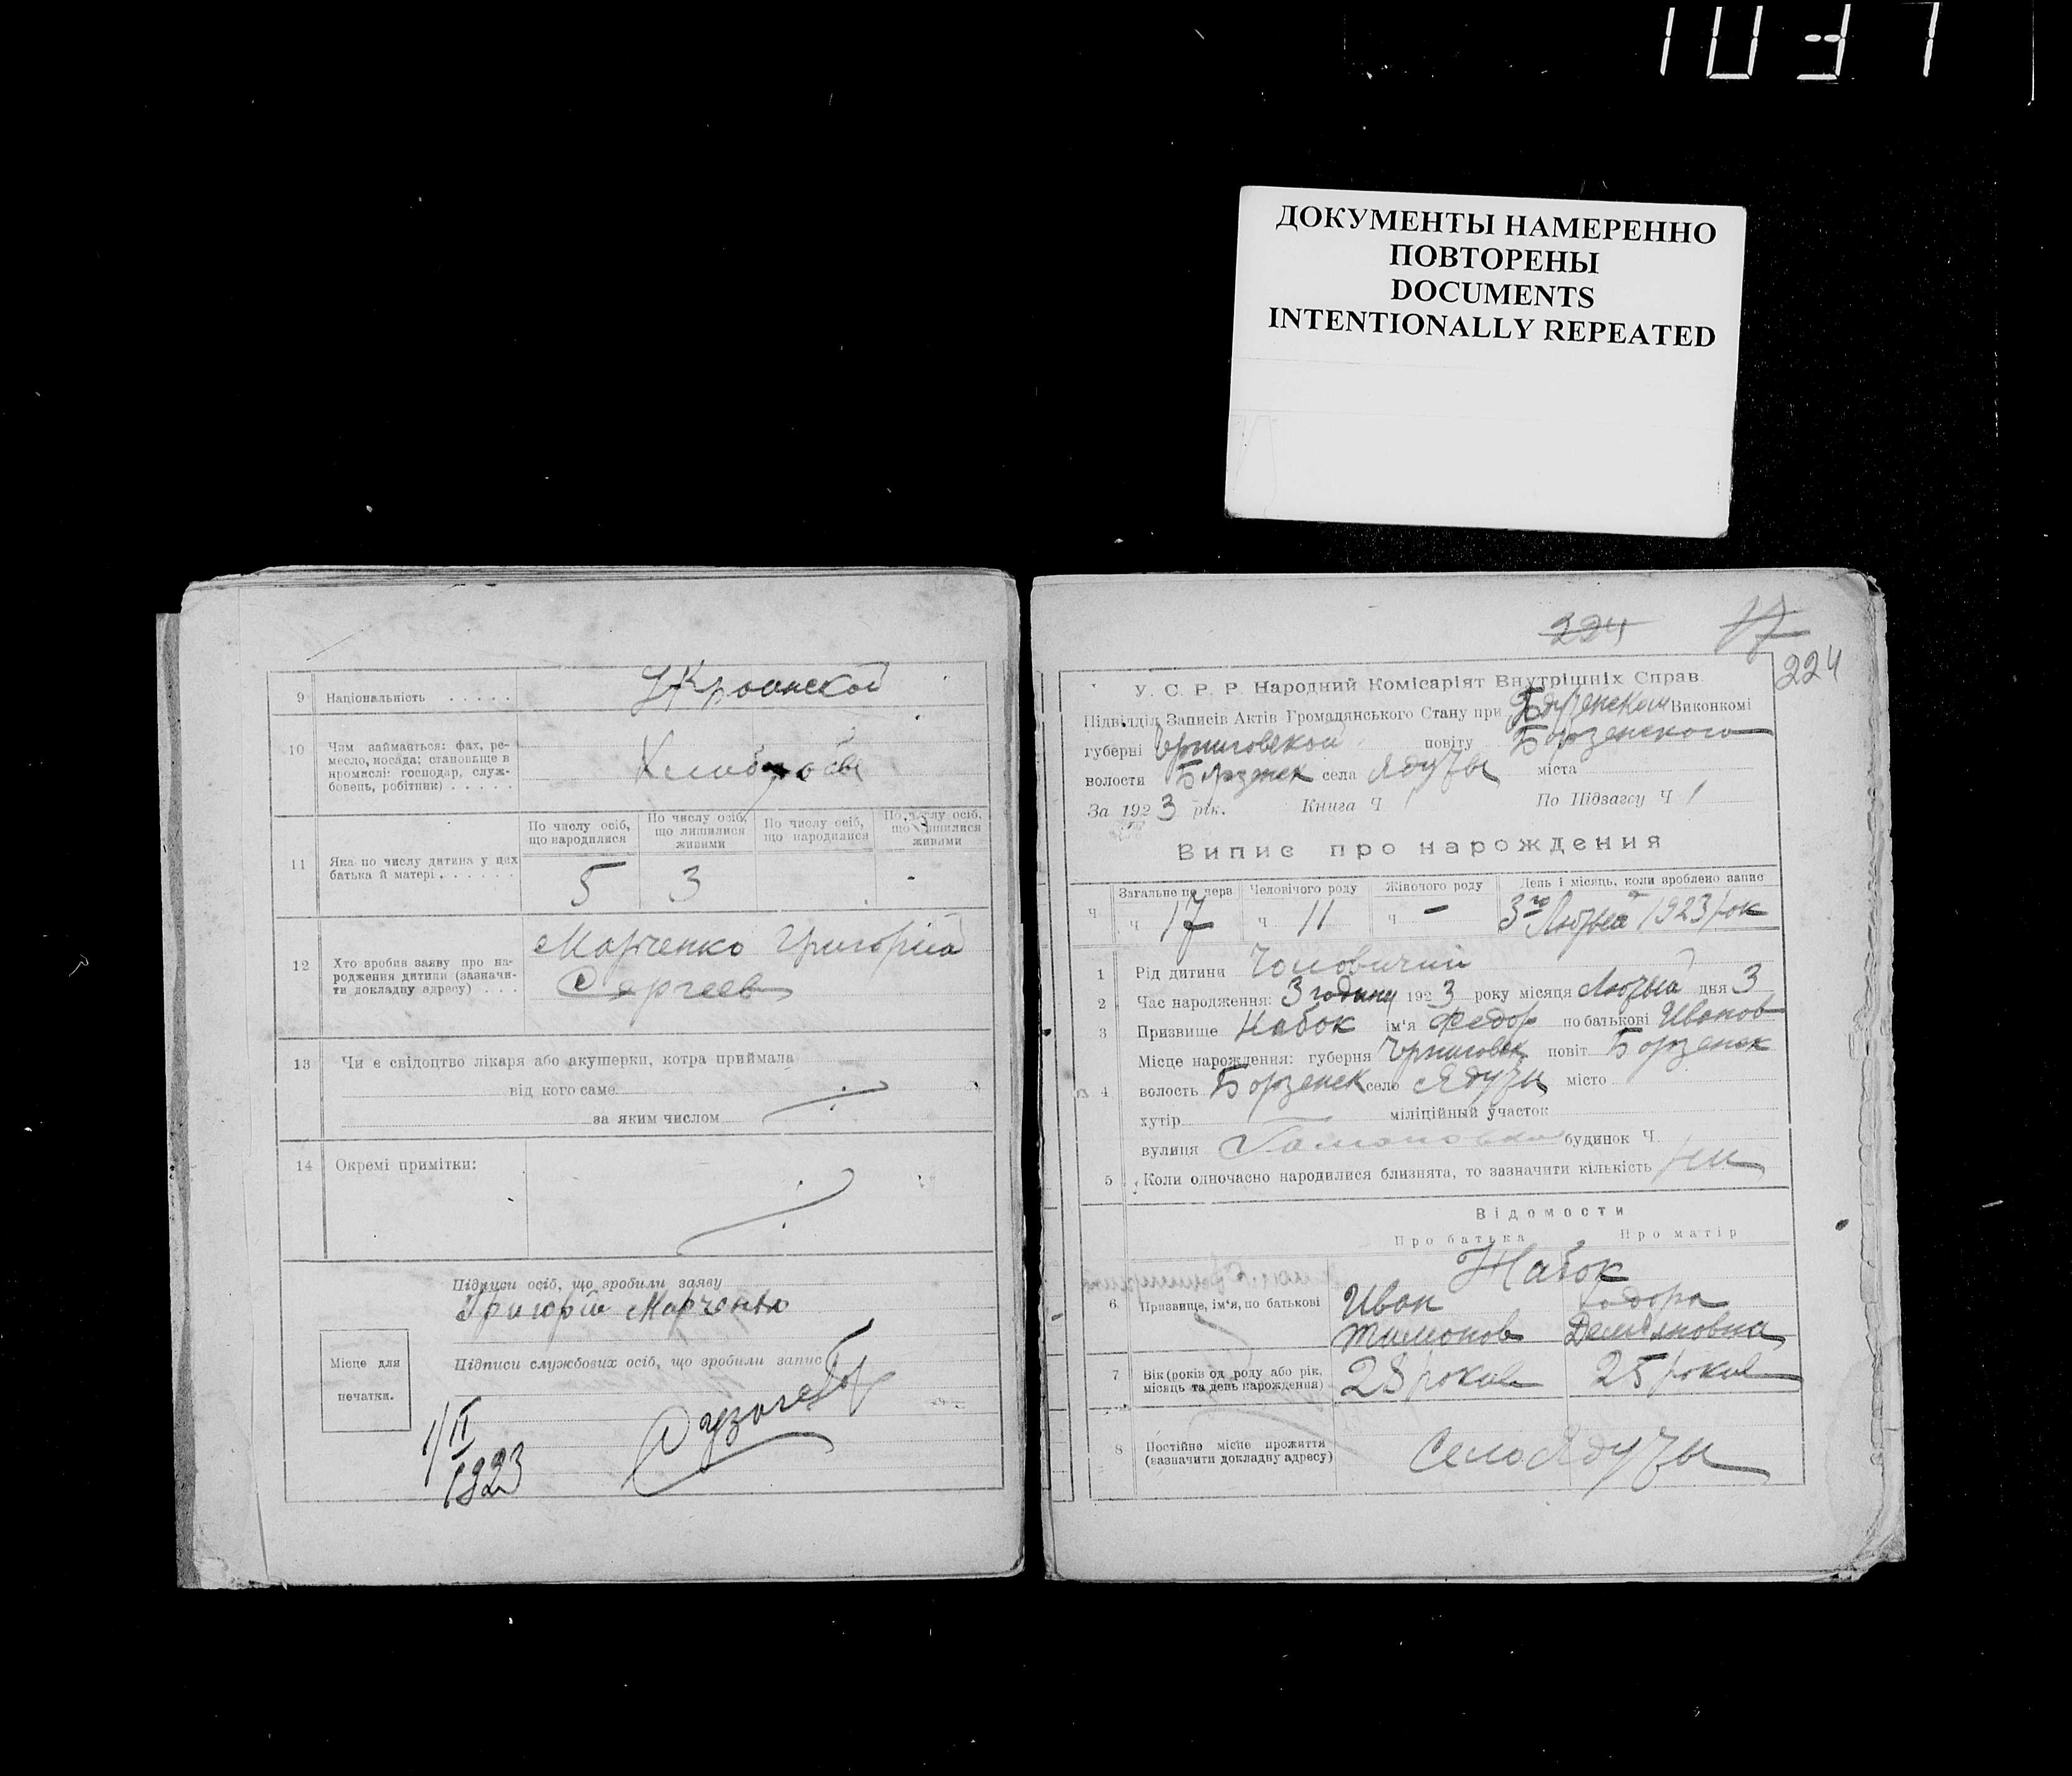 1037
ДОКУМЕНТЫ НАМЕРЕННО
ПОВТОРЕНЫ
DOCUMENTS
INTENTIONALLY REPEATED
9 Національність . . . . .
10 Чим займається: фах, ре-
месло, посада; становище в
промислі: господар, служ-
бовець, робітник) . . . . .
По числу осіб, що народилися
По числу осіб, що лишилися живими
По числу осіб, що народилися
По числу осіб, що лишилися живими
11 Яка по числу дитина у цих
батька й матері . . . . . . 5 3
12 Хто зробив заяву про на-
родження дитини (зазначи-
ти докладну адресу) . . .
Марченко Григорій
Сергеев
13 Чи є свідоцтво лікаря або акушерки, котра приймала
від кого саме
за яким числом
14 Окремі примітки:
Підписи осіб, що зробили заяву
Григорій Марченко
Підписи службових осіб, що зробили запис
Місце для
печатки.
1/II
1923
224 17
224
У. С. Р. Р. Народний Комісаріят Внутрішніх Справ.
Підвідділ Записів Актів Громадянського Стану при Виконкомі
губерні Черниговской повіту Борзенского
волости Борзенск села Ядуты міста
За 1923 рік. Книга Ч По Підзагсу Ч 1
Випис про нарождения
Ч Загальне по черв Человічого роду Жіночого роду День і місяць, коли зроблено запис
ч 17 ч 11 ч — 3го 1923 рок
1 Рід дитини Чоловичий
2 Час народження: 3 годину 1923 року місяця дня 3
3 Призвище Набок ім'я Федор по батькові Иванов
Місце нарождення: губерня Черниговск повіт Борзенск
4 волость Борзенск село Ядуты місто
хутір міліційный участок
вулиця будинок Ч
5 Коли одночасно народилися близнята, то зазначити кількість
Відомости
Про батька Про матір
Набок
6 Призвище, ім'я, по батькові Иван Тодора
Тимонов Демьяновна
7 Вік (років од роду або рік,
місяць та день нарождення) 28 років 25 років
8 Постійне місце прожиття
(зазначити докладну адресу) Село Ядуты